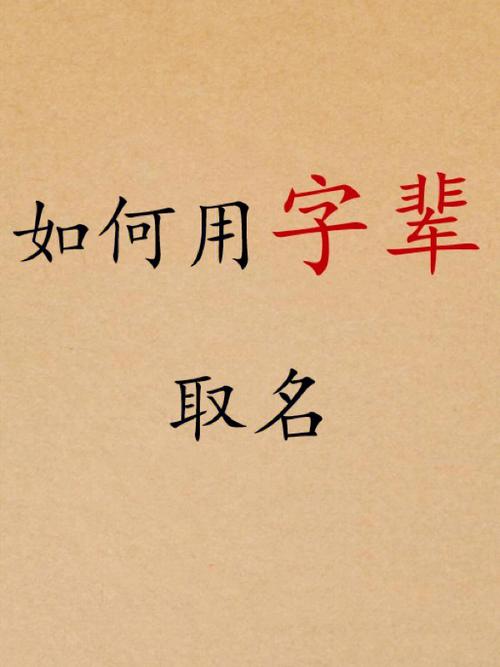 如何用字辈
取名